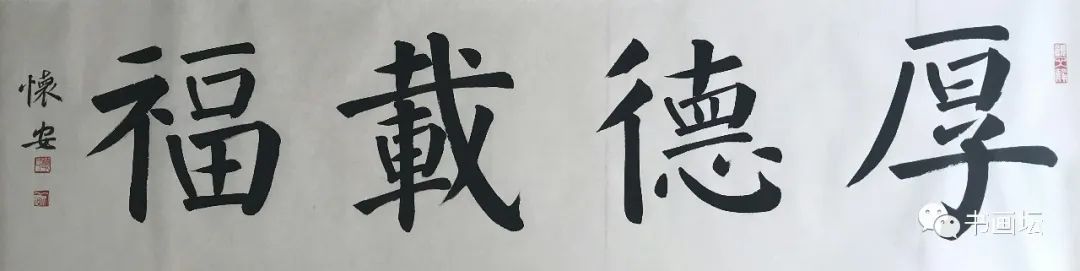 厚德載福
懷安
书画坛